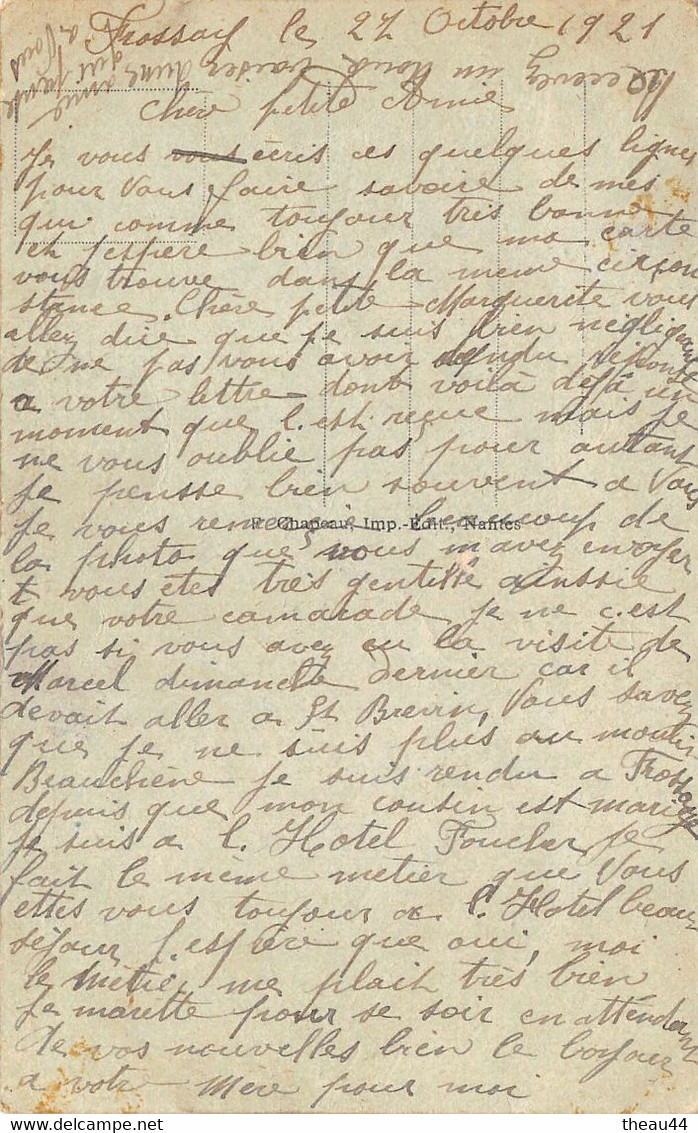 Frossay le 27 Octobre 1921
Chère petite Amie
Je vous vous écris ces quelques lignes
pour vous faire savoire de mes
qui comme toujour très bonne
et j'espère bien que ma carte
vous trouve dans la meme circon
stance. Chère petite Marguerite vous
allez dire que je suis bien negligante
de ne pas vous avoir rendu réponse
a votre lettre dont voilà déjà un
moment que l'est reçue mais je
ne vous oublie pas pour autant
je pensse bien souvent a vous
Je vous remercie beaucoup de
la photo que vous m'avez envoyer
vous etes très gentille aussie
que votre camarade, je ne c'est
pas si vous avez eu la visite de
Marcel dimanche dernier car il
devait aller a St Brevin, Vous savez
que je ne suis plus au moulin
Beauchêne je suis rendu a Frossay
depuis que mon cousin est marié
je suis a l'Hotel Foucher je
fait le même metier que vous
ettes vous toujour a l'Hotel beau
séjour j'espère que oui, moi
le métié me plait très bien
Je marette pour se soir en attendant
de vos nouvelles bien le bonjour
a votre Mère pour moi
Recevez un doux baiser d'une amie
qui pense
a vous
F. Chapeau, Imp.-Edit., Nantes
theau44